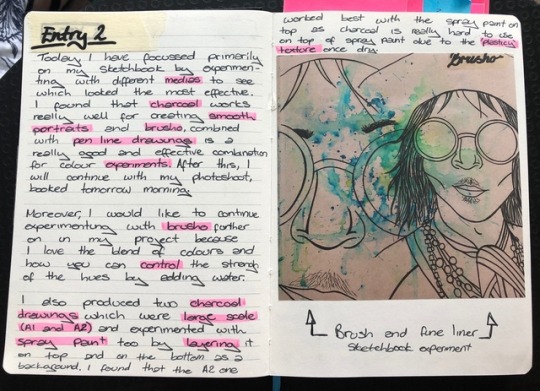 Entry 2
Today I have focussed primarily
on my sketchbook by experimen-
ting with different medias to see
which looked the most effective.
I found that charcoal works
really well for creating smooth
portraits and brusho, combined
with pen line drawings is a
really good and effective combination
for colour experiments. After this, I
will continue with my photoshoot,
booked tomorrow morning.
Moreover, I would like to continue
experimenting with brusho further
on in my project because
I love the blend of colours and
how you can control the strength
of the hues by adding water.
I also produced two charcoal
drawings which were large scale
(A1 and A2) and experimented with
spray paint too by layering it
on top and on the bottom as a
background. I found that the A2 one
worked best with the spray paint on
top as charcoal is really hard to use
on top of spray paint due to the 'plasticy'
texture once dry.
Brusho
Brush and fine liner
sketchbook experiment